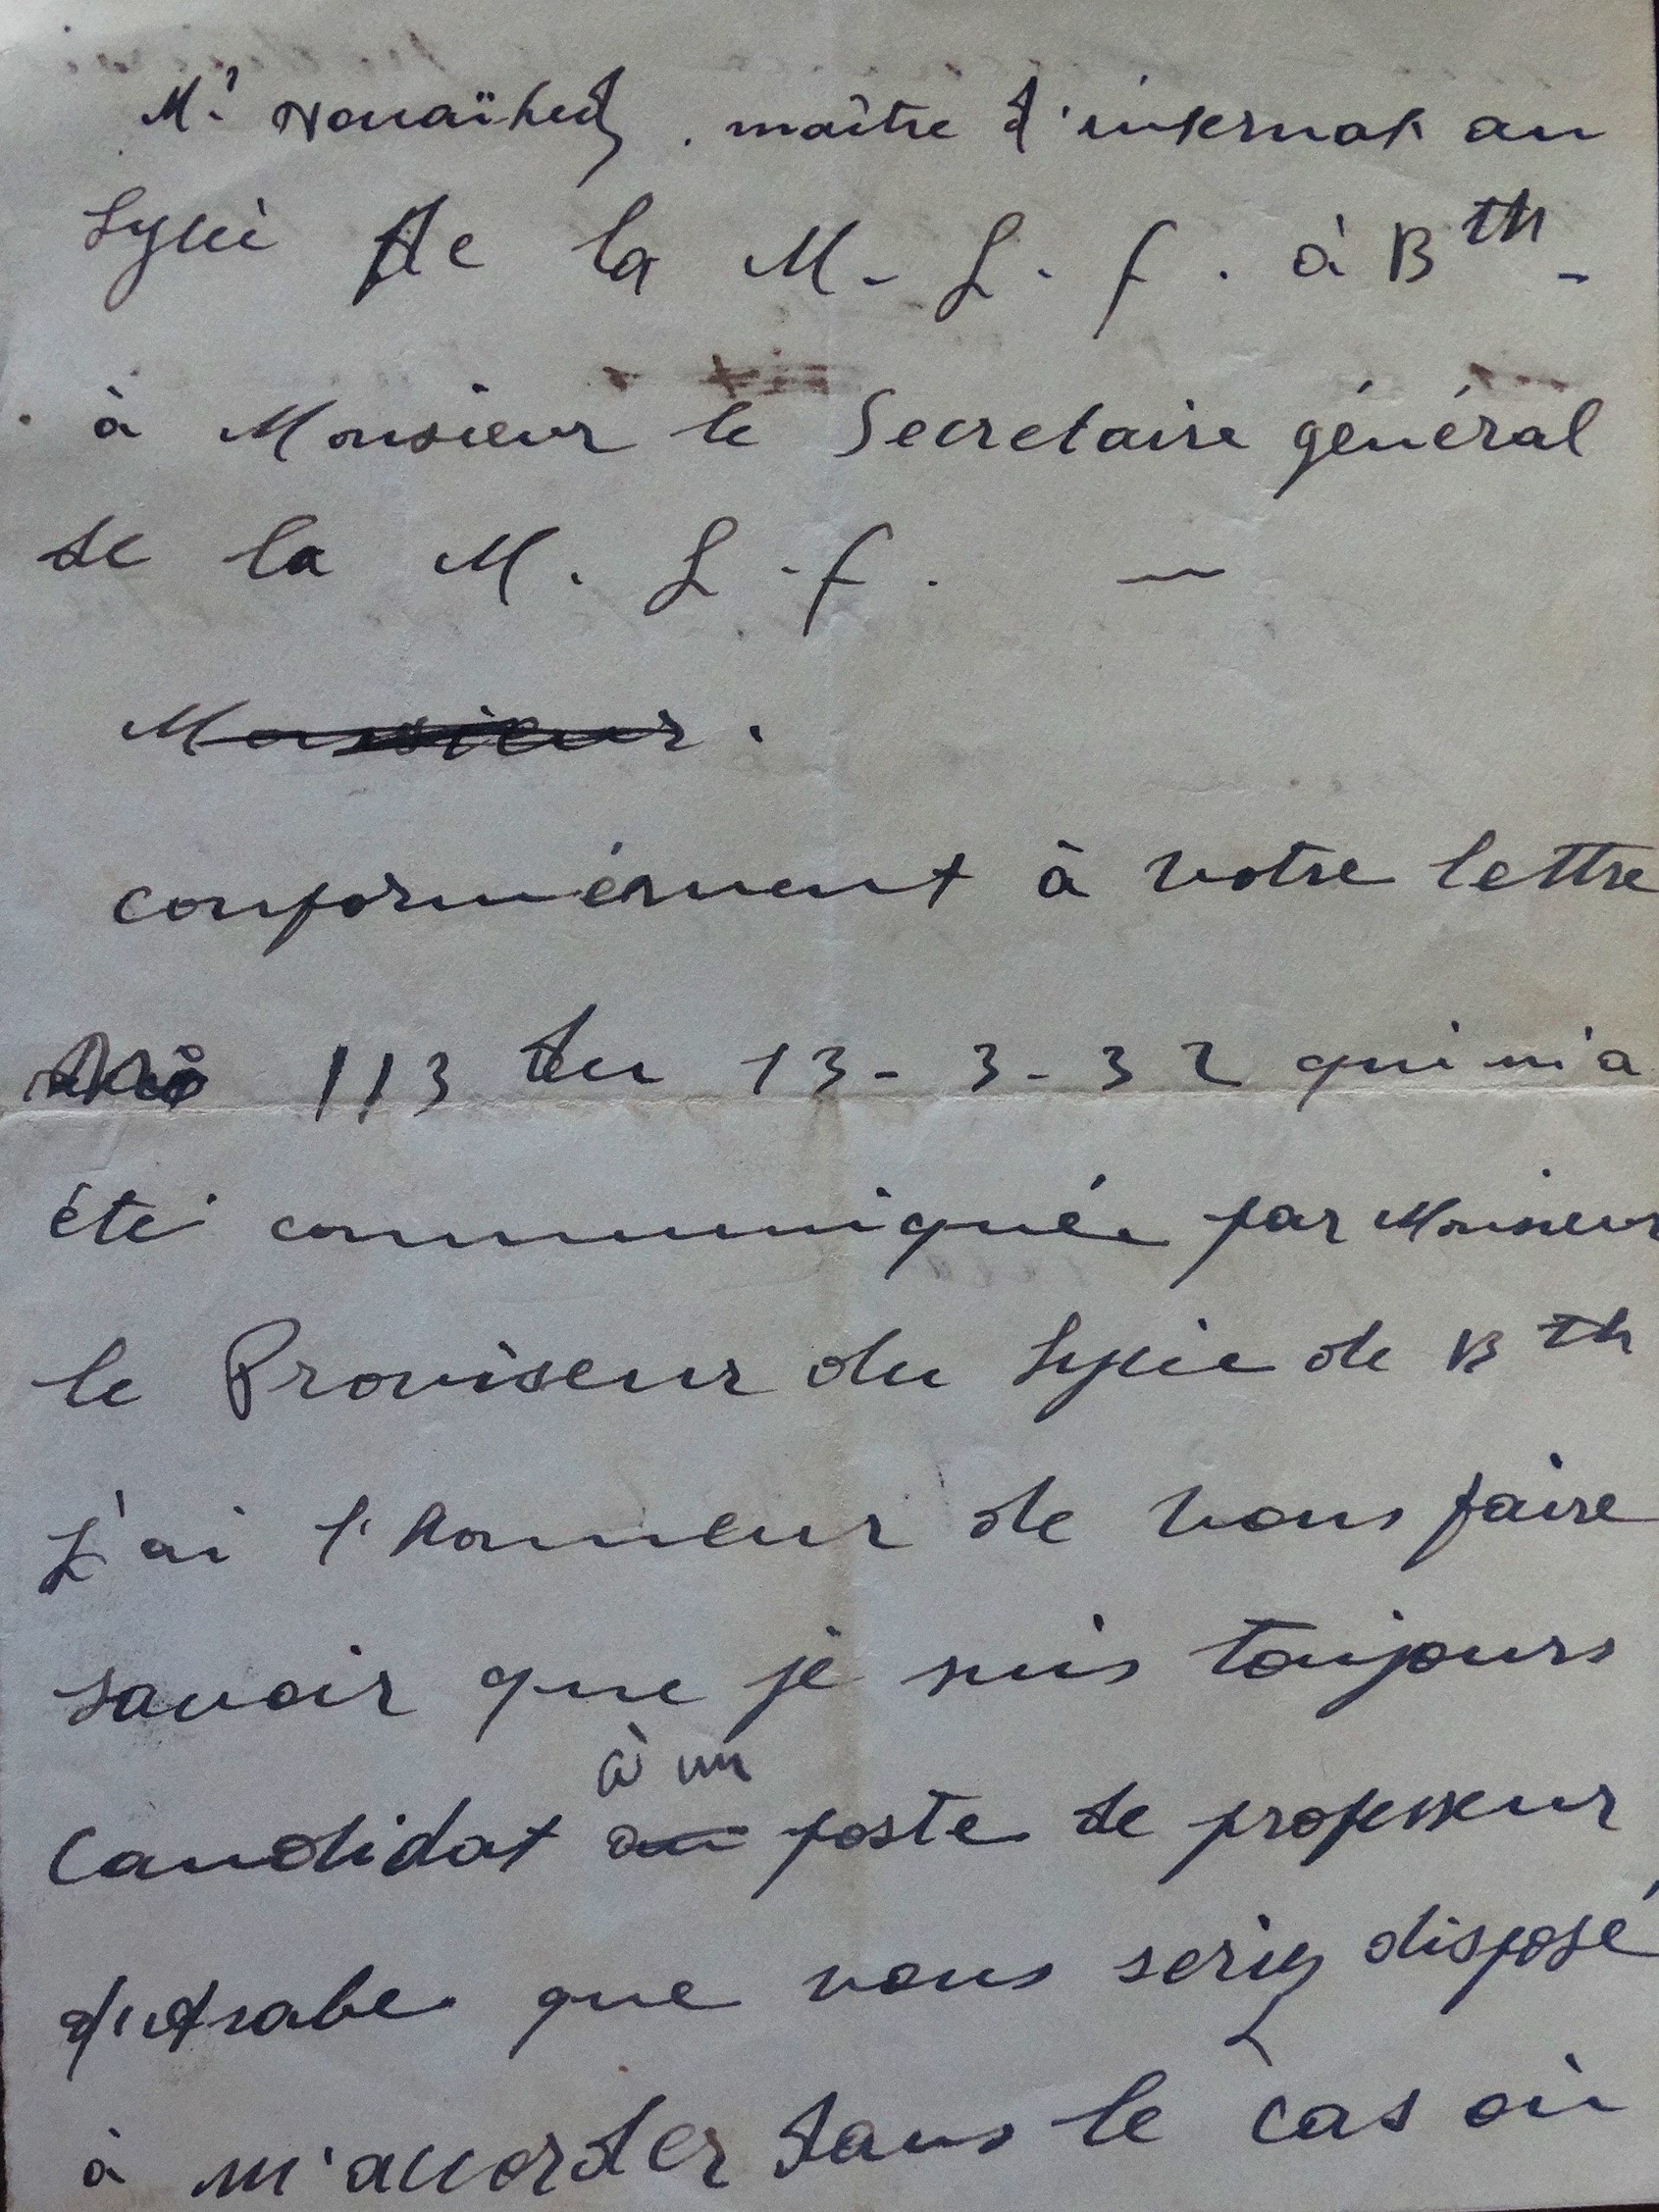 Mr Nouaïhed, maître d'internat au
Lycée de la M. L. f. à Bth -
à Monsieur le Secretaire général
de la M. L. f. —
Monsieur.
conformément à votre lettre
113 du 13-3-32 qui m'a
été communiquée par Monsieur
le Proviseur du Lycée de Bth
J'ai l'honneur de vous faire
savoir que je suis toujours
à un
Candidat au poste de professeur
d'Arabe que vous seriez disposé
à m'accorder dans le cas où